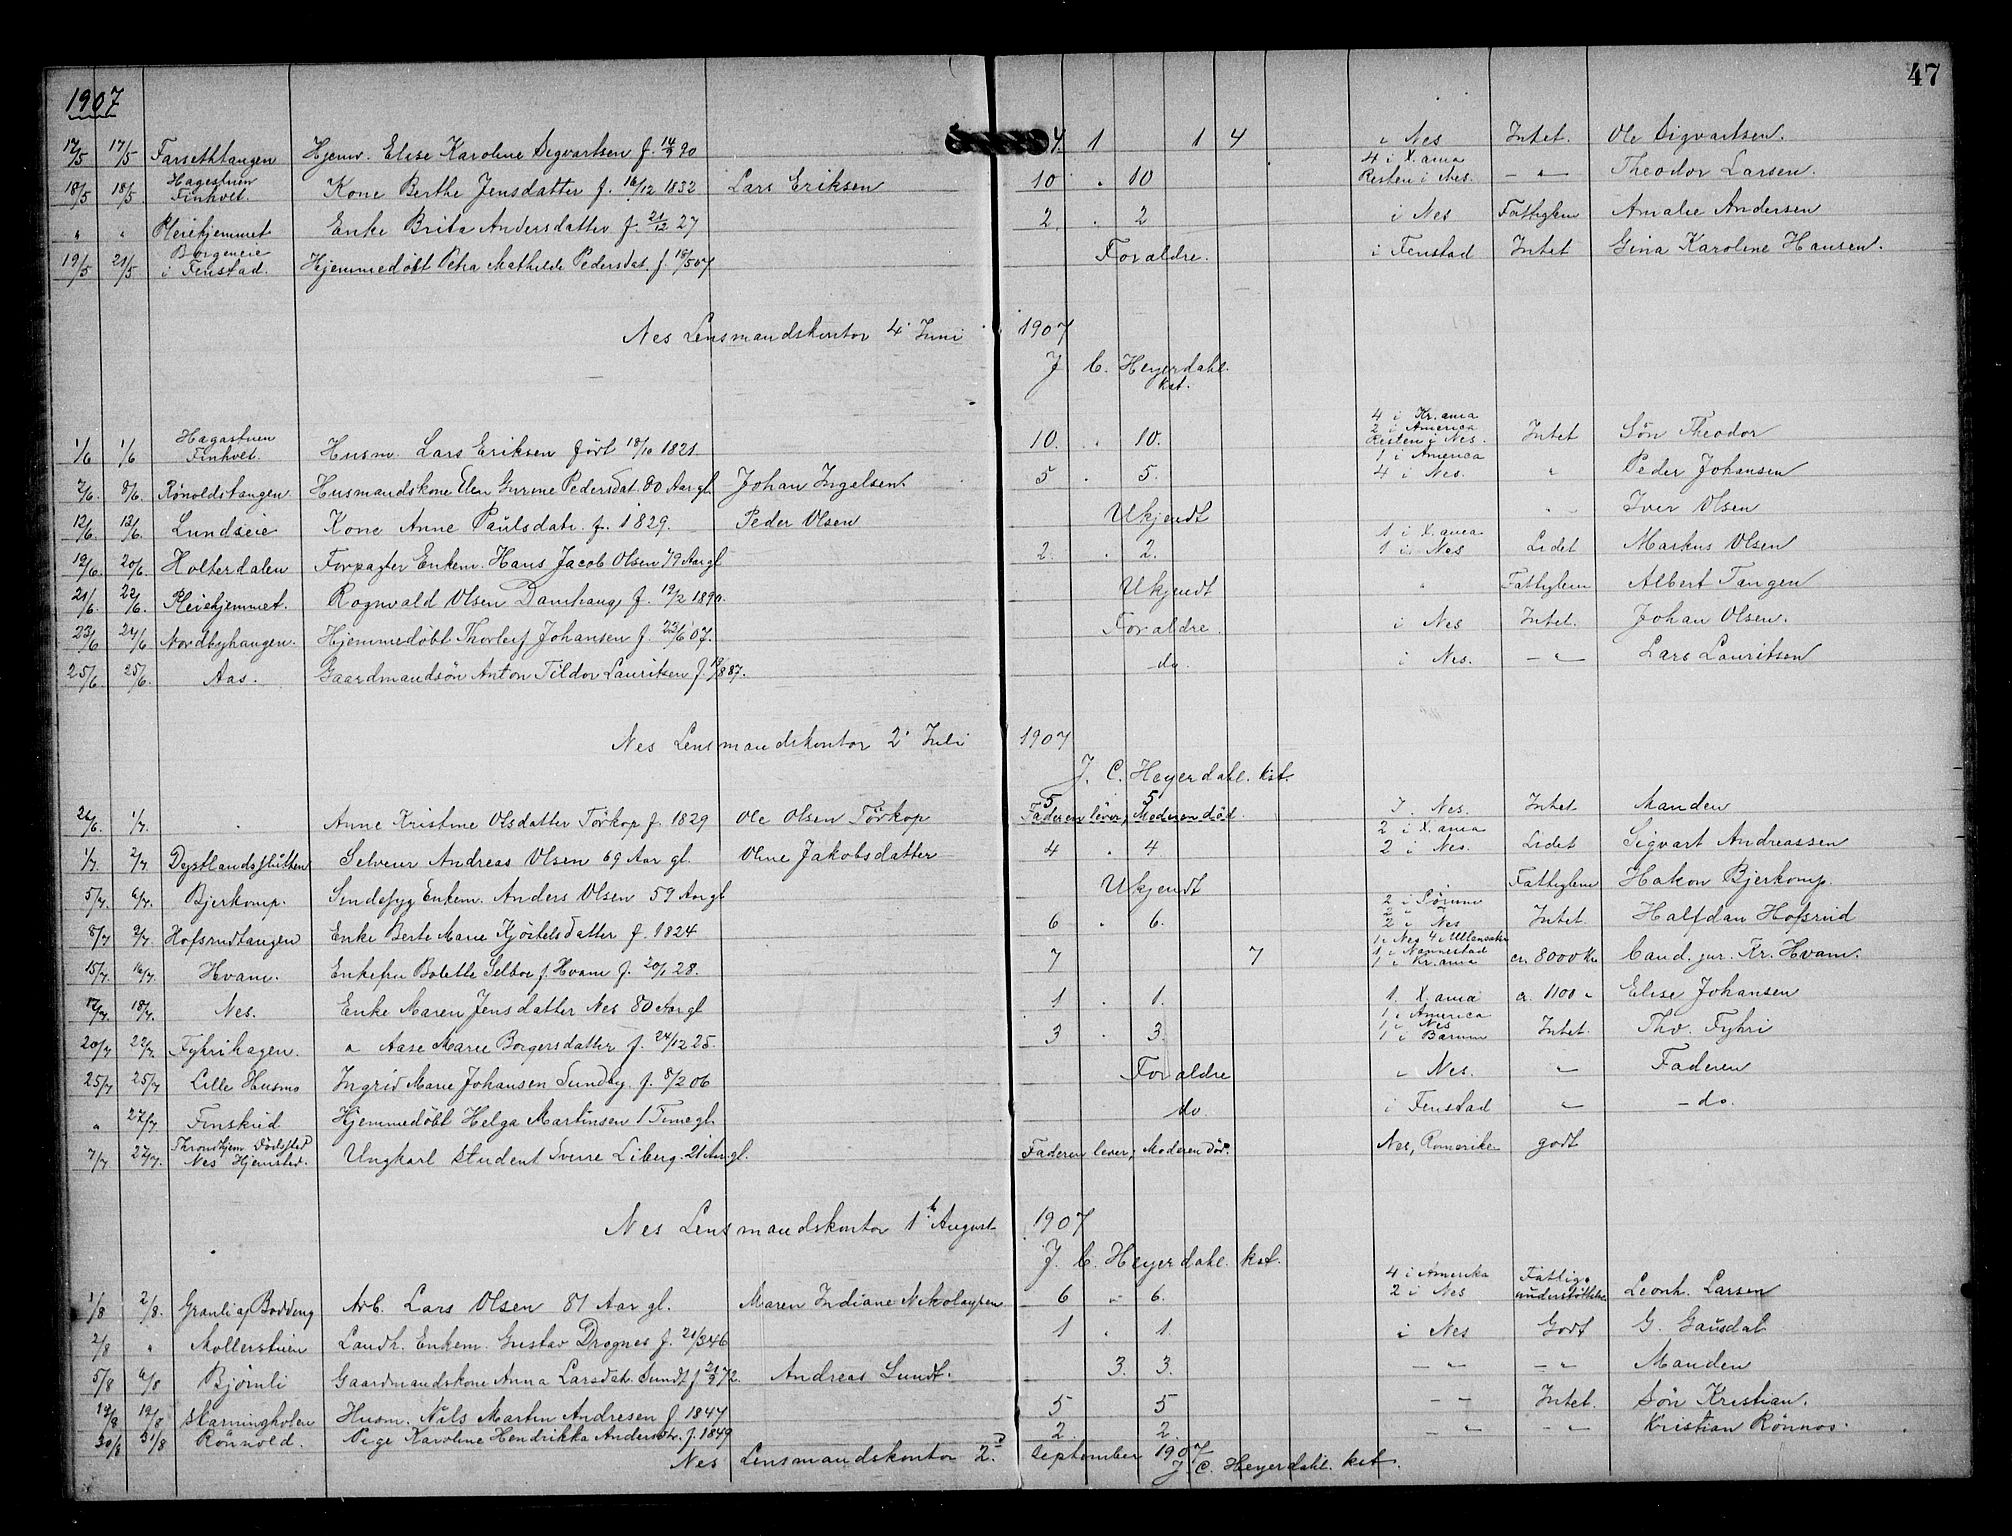 47
1907
17/5 17/5 Farsethtangen Hjemv. Elise Karoline Sigvartsen f. 14/9 90 4 1 1 4 i Nes Intet. Ole Sigvartsen.
18/5 18/5 Hagestuen Finholt. Kone Berthe Jensdatter f. 16/12 1832 Lars Eriksen 10 " 10 4 i X.ania Resten i Nes. — " — Theodor Larsen.
" " Pleiehjemmet Enke Brita Andersdatter f. 21/12 27 2. " 2 i Nes Fattiglem Amalie Andersen
19/5 21/5 Borgeneie i Fenstad. Hjemmedøbt Petra Mathilde Pedersdat. f. 18/5 07 Foraldre. i Fenstad Intet Gina Karoline Hansen.
Nes Lensmandskontor 4' Juni 1907
J. C. Heyerdahl. kst.
1/6 1/6 Hagastuen Finholt. Husm. Lars Eriksen født 18/10 1821 10. " 10. 4 i Kr.ania 2 i America Resten i Nes. Intet Søn Theodor
7/6. 8/6. Rønoldstangen Husmandskone Elen Gurine Pedersdat. 80 Aar gl. Johan Ingelsen. 5 " 5. 1 i America 4 i Nes. " Peder Johansen
12/6. 13/6. Lundseie Kone Anne Paulsdatr. f. 1829. Peder Olsen Ukjendt " " Iver Olsen
19/6. 20/6. Holterdalen Forpagter Enkem. Hans Jacob Olsen 79 Aar gl 2. " 2. 1 i X.ania 1 i Nes Lidet Markus Olsen
21/6. 22/6. Pleiehjemmet. Rognvald Olsen Damhaug f. 19/2 1890. Ukjendt " Fattiglem Albert Tangen
23/6 24/6 Nordbyhangen. Hjemmedøbt Thorleif Johansen f. 23/6 07. Foraldre. i Nes Intet. Johan Olsen.
25/6 25/6. Aas. Gaardmandsøn Anton Tildor Lauritsen f. 19/8 87. do. i Nes. — " — Lars Lauritsen
Nes Lensmandskontor 2' Juli 1907
J. C. Heyerdahl. kst.
26/6. 1/7. " Anne Kristine Olsdatter Törkop f. 1829 Ole Olsen Törkop 5 5 Faderen lever, Moderen død. I. Nes. Intet Manden
1/7 2/7. Dystlandsflutten Selveier Andreas Olsen 69 Aar gl. Oline Jakobsdatter 4 " 4 2 i X.ania 2 i Nes. Lidet Sigvart Andreassen
5/7. 6/7. Bjerkomp. Sindssyg Enkem. Anders Olsen 59 Aar gl Ukjendt Fattiglem Hakon Bjerkomp.
8/7 9/7. Hofsrudtangen Enke Berte Marie Kjøstelsdatter f. 1824 6 " 6. 2 i Sørum 2 " " 2 i Nes Intet Halfdan Hofsrud
15/7. 16/7. Hvam. Enkefru Bolette Selboe f. Hvam f. 20/1 28. 7 7 1 i Nes 4 i Ullensaker 1 i Nannestad 1 i Kr.ania ca. 8000 Kr. Cand. jur. Kr. Hvam.
17/7. 18/7. Nes. Enke Maren Jensdatter Nes 80 Aar gl 1 " 1. 1. X.ania ca. 1100 " Elise Johansen
20/7 22/7. Fyhrihagen. " Aase Marie Borgersdatter f. 24/12 25. 3 " 3. 1 i America 1 i Nes 1 i Bærum Intet. Thv. Fyhri
25/7 25/7 Lille Husmo Ingrid Marie Johansen Sundby. f. 8/2 06 Foraldre i Nes. " Faderen
" 27/7 Finskud Hjemmedöbt Helga Martinsen 1 Time gl. do. i Fenstad " — do.
7/7 27/7. Thronhjem Dødssted Nes Hjemsted. Ungkarl Student Sverre Liberg. 21 Aar gl. Faderen lever, Moderen död. Nes, Romerike godt
Nes Lensmandskontor 1. August 1907
J. C. Heyerdahl. kst.
1/8 2/8. Granli af Bodding Arb. Lars Olsen 81 Aar gl. Maren Indiane Nikolaysen 6 " 6. 4 i Amerika 2 i Nes Fattigunderstøttelse Leonh. Larsen
2/8 " Mollerstuen Landh. Enkem. Gustav Drognes f. 21/3 46 1 " 1. i Nes Godt G. Gausdal
5/8 6/8 Bjørnli Gaardmandskone Anna Larsdatr. Sundt f. 21/9 72. Andreas Sundt. 3. 3. — " — — " — Manden
19/8 19/8 Skarningholen Husm. Nils Martin Andresen f. 1847 5 5 — " — Intet. Søn Kristian.
30/8 31/8 Rönnold. Pige Karoline Hendrikka Andersdtr. f. 1849 2 2. — " — — " — Kristian Rønnos.
Nes Lensmandskontor 2. September 1907
J. C. Heyerdahl. kst.